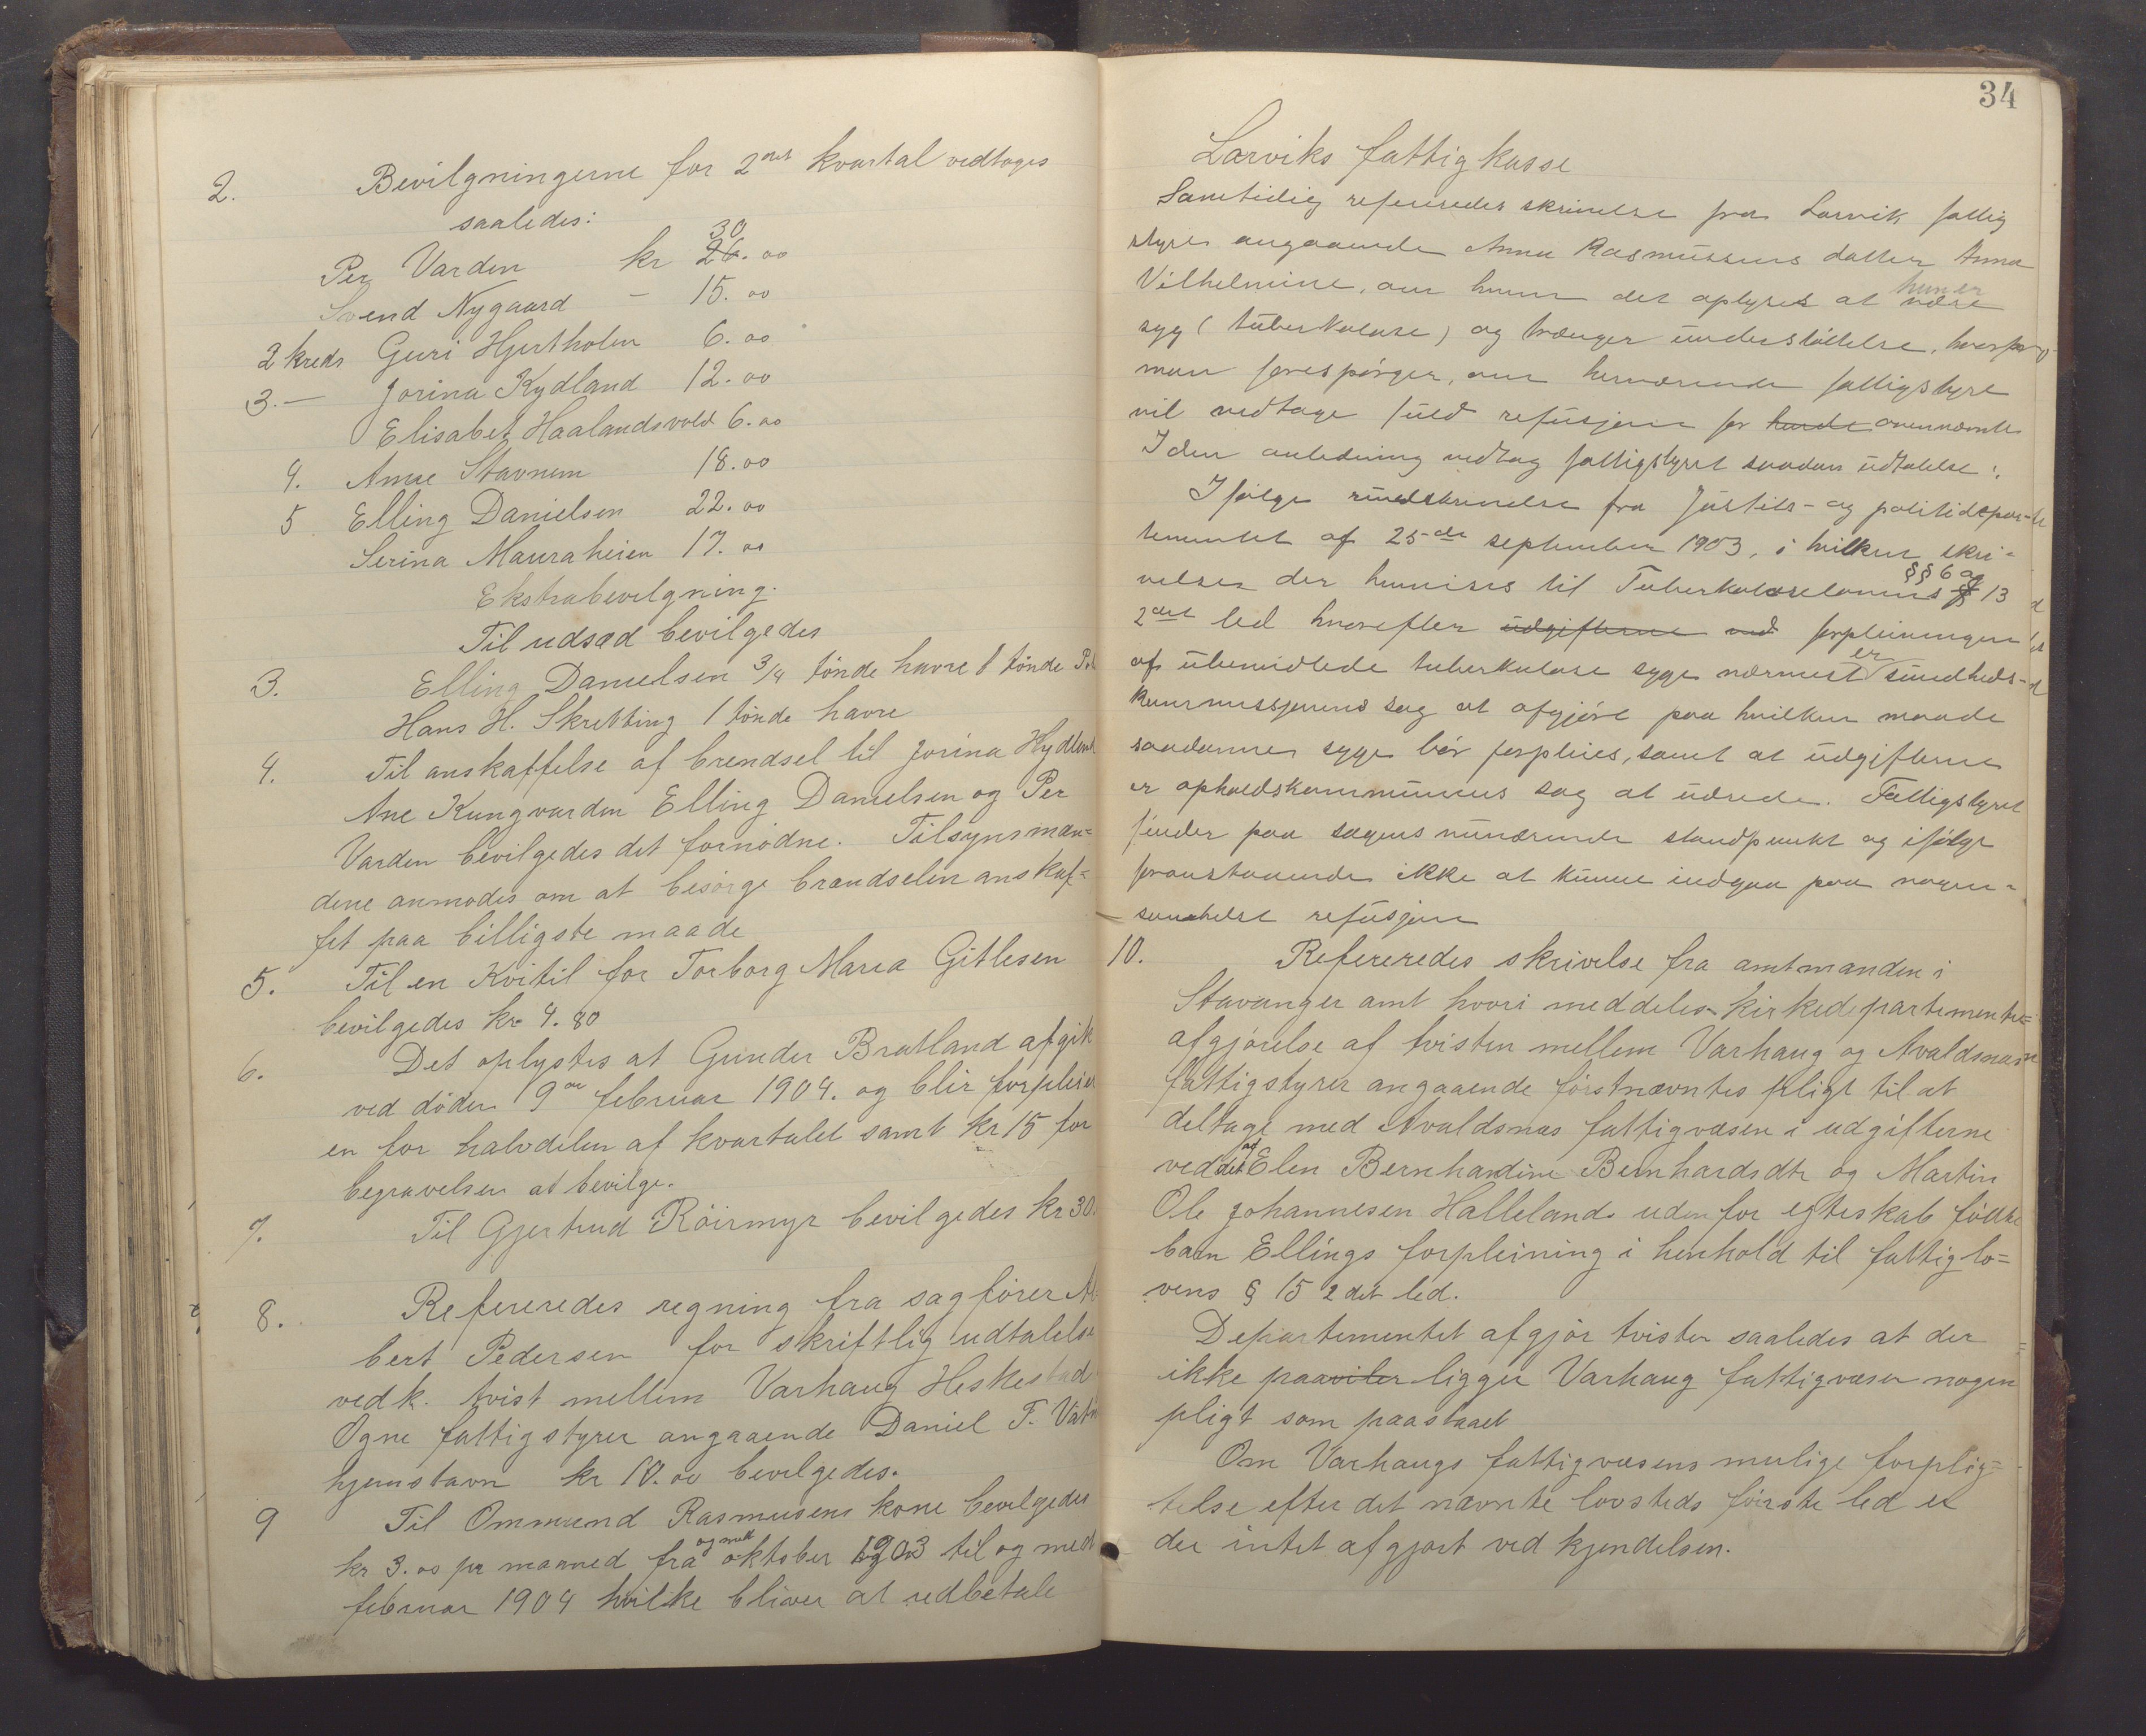 2. Bevilgningerne for 2det kvartal vedtoges
saaledes:
30
Per Varden kr 26.00
Svend Nygaard - 15.00
2 kreds Guri Hjertholm 6.00
3.— Jorina Kydland 12.00
Elisabet Haalandsvold 6.00
4. Amse Stavnem 18.00
5 Elling Danielsen 22.00
Serina Mauraheien 17.00
Ekstrabevilgning.
Til udsæd bevilgedes
3. Elling Danielsen 3/4 tönde havre 1 tönde
Hans H. Skretting 1 tönde havre
4. Til anskaffelse af brendsel til Jorina Kydland
Ane Kungvarden Elling Danielsen og Per
Varden bevilgedes det fornödne. Tilsynsmæn=
dene anmodes om at besörge brændselen anskaf=
fet paa billigste maade
5. Til en Kvitil for Torborg Maria Gitlesen
bevilgedes kr 4.80
6. Det oplystes at Gunder Bratland afgik
ved döden 9de februar 1904. og blir forpleien
en for halvdelen af kvartalet samt kr 15 for
begravelsen at bevilge.
7. Til Gjertrud Röirmyr bevilgedes kr 30.
8. Refereredes regning fra sagförer Al
bert Pedersen for skriftlig udtalelse
vedk. tvist mellem Varhaug Heskestad
Ogne fattigstyrer angaaende Daniel T. Vatn
hjemstavn kr 10.00 bevilgedes.
9 Til Ommund Rasmusens kone bevilgedes
og med
kr 3.00 pr maaned fra oktober 1903 til og med
februar 1904 hvilke bliver at udbetale
34
Larviks fattigkasse
Samtidig refereredes skrivelse fra Larvik fattig
styre angaaende Anna Rasmussens datter Anna
hun er
Vilhelmine, om hvem det oplyses at være
syg (tuberkulose) og trænger understöttelse, hvorfor
man forespörger, om herværende fattigstyre
vil vedtage fuld refusjon for hende ovennævnte
I den anledning vedtog fattigstyret saadan udtalelse:
Ifölge rundskrivelse fra Justits- og politidepar-
tementet af 25de september 1903, i hvilken skri-
§§ 6 og
velse der henvises til Tuberkuloselovens § 13
2det led hvorefter udgifterne ved forpleiningen
er
af ubemidlede tuberkulose syge nærmest sundheds-
kommissjonens sag at afgjöre paa hvilken maade
saadanne syge bör forpleies, samt at udgifterne
er opholdskommunens sag at udrede. Fattigstyret
finder paa sagens nuværende standpunkt og ifölge
foranstaaende ikke at kunne indgaa paa nogen-
somhelst refusjon
10. Refereredes skrivelse fra amtmanden i
Stavanger amt hvori meddeles kirkedepartementets
afgjörelse af tvisten mellem Varhaug og Avaldsnæs
fattigstyrer angaaende förstnævntes pligt til at
deltage med Avaldsnæs fattigvæsen i udgifterne
af
ved det Elen Bernhardine Bernhardsdtr og Martin
Ole Johannesen Hallelands udenfor egteskab födte
barn Ellings forpleining i henhold til fattiglo=
vens § 15 2det led.
Departementet afgjör tvisten saaledes at der
ikke paaviler ligger Varhaug fattigvæsen nogen
pligt som paastaaet
Om Varhaugs fattigvæsens mulige forplig=
telse efter det nævnte lovsteds förste led er
der intet afgjort ved kjendelsen.